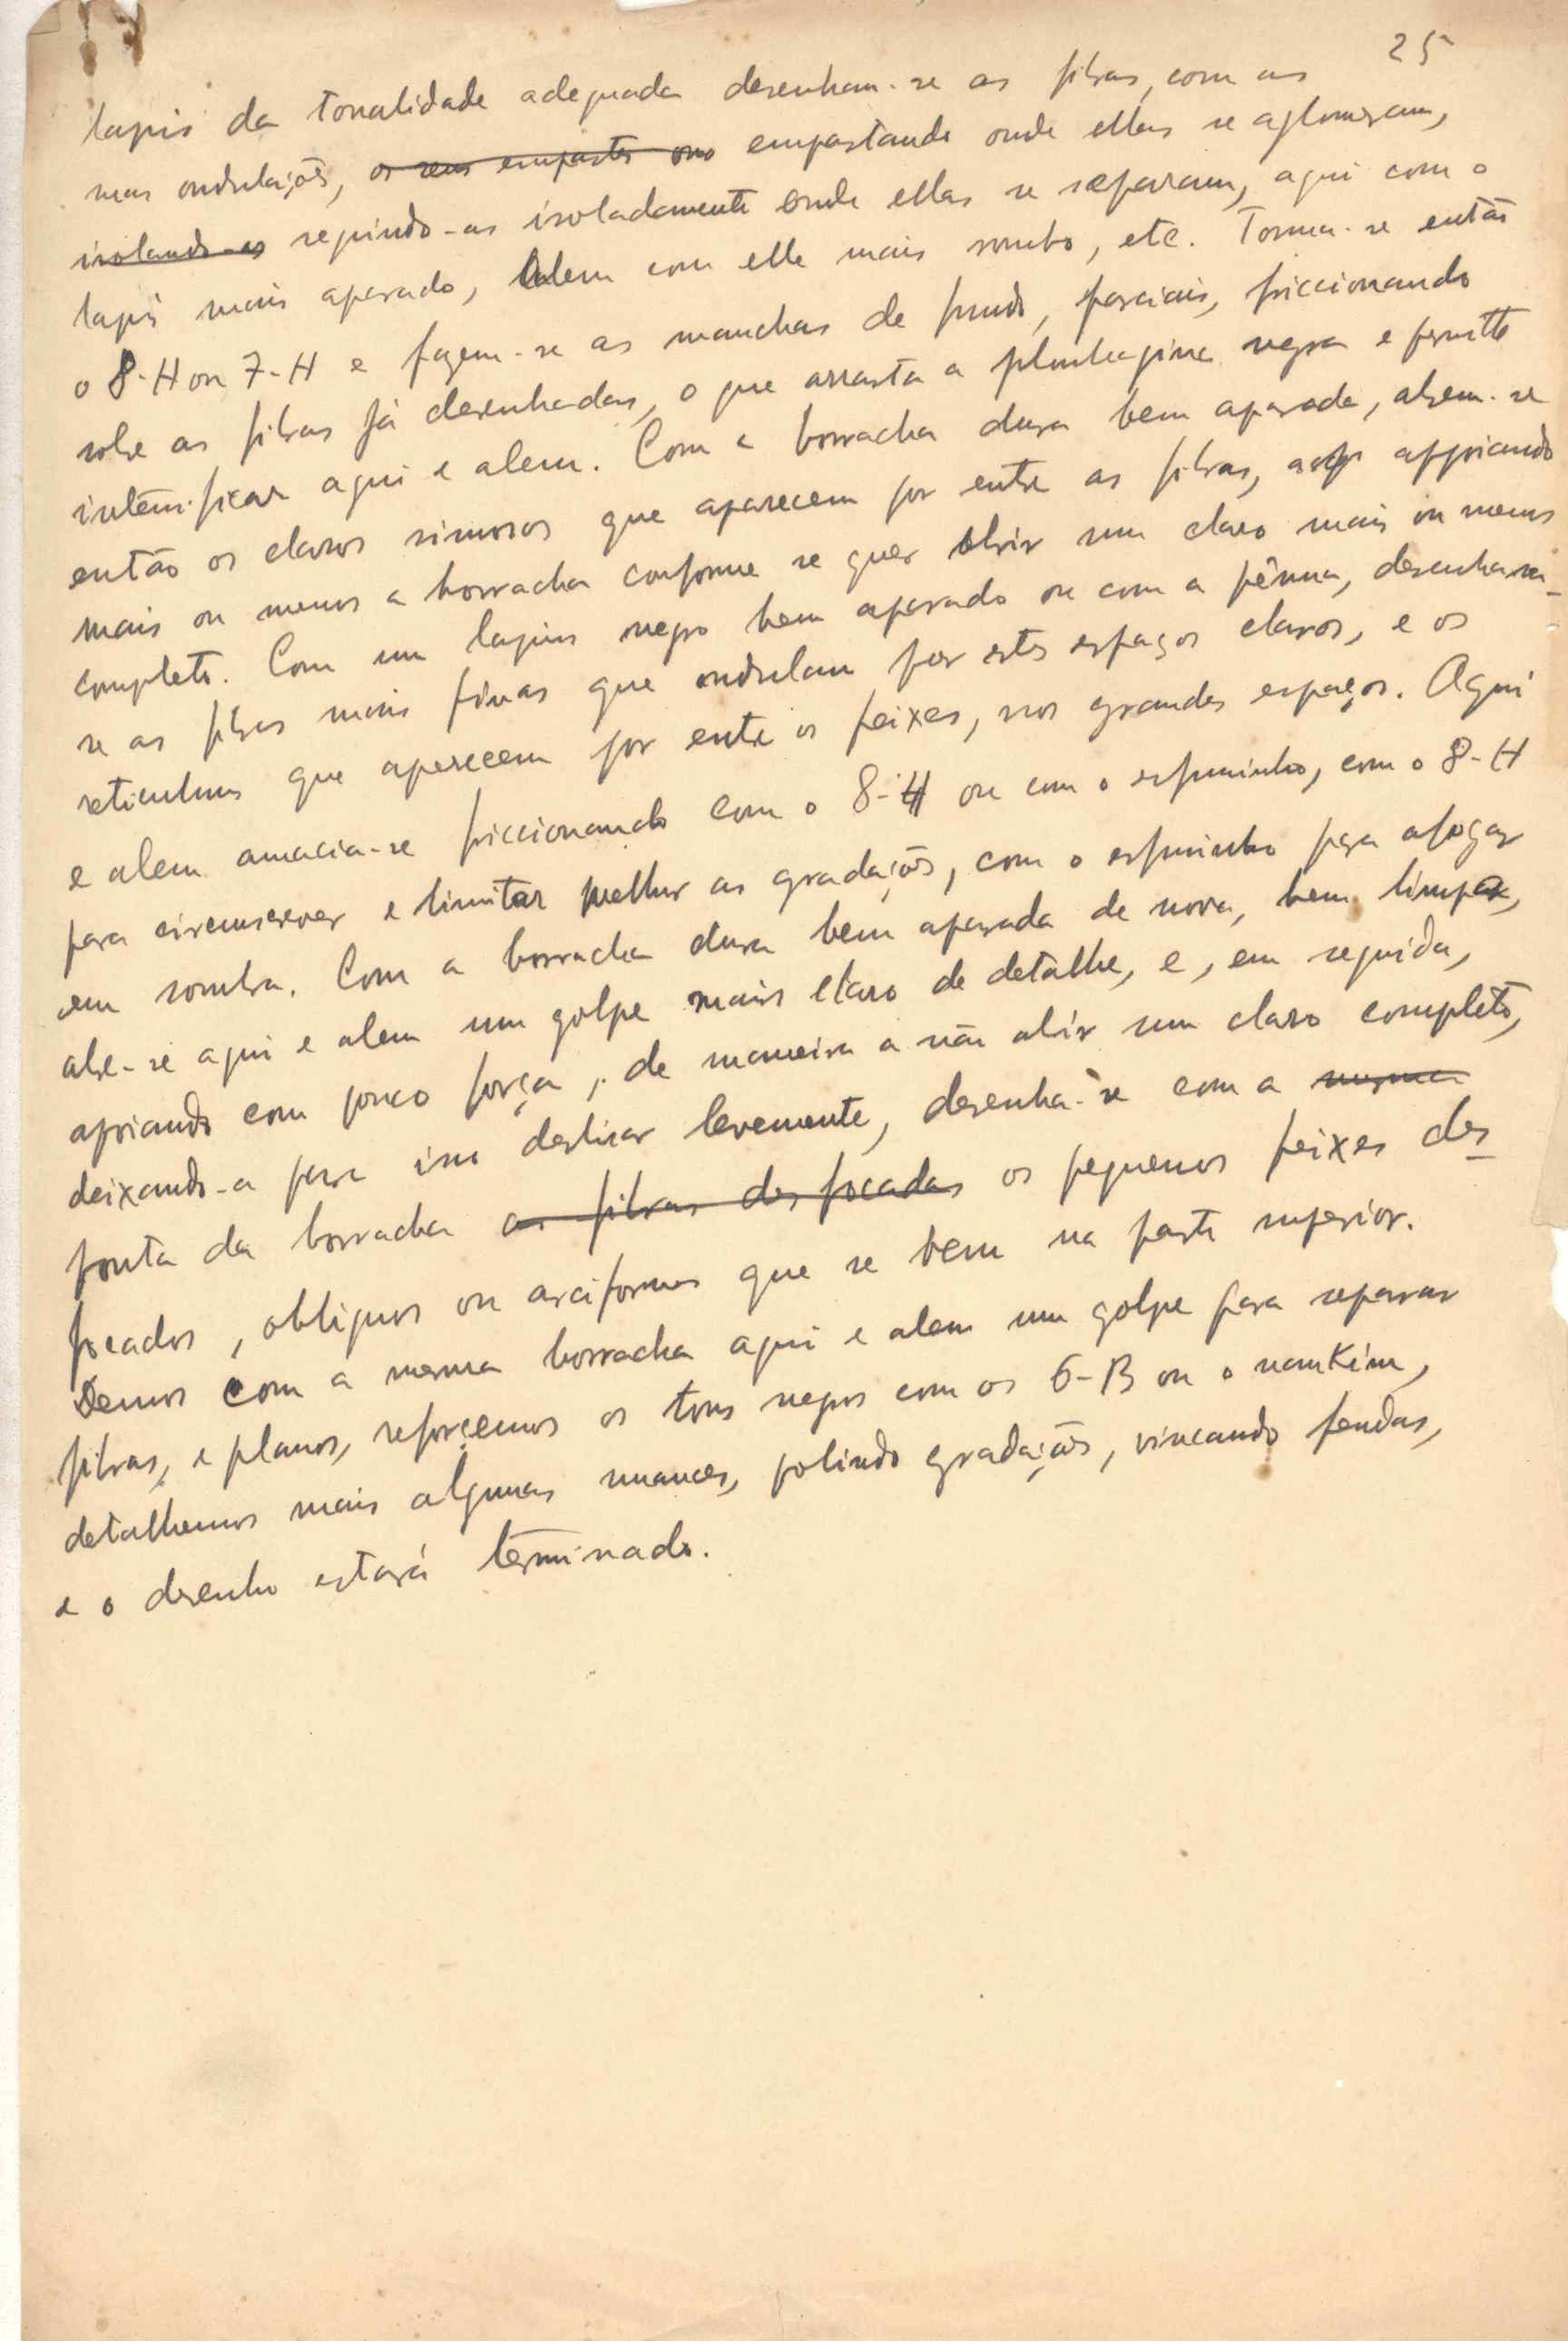 25
lapis da tonalidade adequada desenham-se as fibras, com as
suas ondulações, os seus empastes ono empastando onde ellas se aglomeram,
isolando-as seguindo-as isoladamente onde ellas se separam, aqui com o
lapis mais aparado, alem com elle mais rombo, etc. Toma-se então
o 8-H ou 7-H e fazem-se as manchas de fundo, parciais, friccionando
sobre as fibras já desenhadas, o que arrasta a plumbagina negra e permitte
intensificar aqui e alem. Com a borracha dura bem aparada, abrem-se
então os claros sinuosos que aparecem por entre as fibras, appoiando
mais ou menos a borracha conforme se quer abrir um claro mais ou menos
completo. Com um lapis negro bem aparado ou com a pênna, desenham-
se as fibras mais finas que ondulam por estes espaços claros, e os
reticuluns que aparecem por entre os feixes, nos grandes espaços. Aqui
e alem amacia-se friccionando com o 8-H ou com o esfuminho, com o 8-H
para circunscrever e limitar melhor as gradações, com o esfuminho para afogar
em sombra. Com a borracha dura bem aparada de novo, bem limpa,
abre-se aqui e alem um golpe mais claro de detalhe, e, em seguida,
apoiando com pouco força, de maneira a não abrir um claro completo,
deixando-a para isso deslisar levemente, desenha-se com a mesma
ponta da borracha as fibras des focadas os pequenos feixes des
focados, obliquos ou arciformes que se vem na parte superior.
Demos com a mesma borracha aqui e alem um golpe para separar
fibras, e planos, reforçemos os tons negros com os 6-B ou o nankim,
detalhemos mais algumas nuances, polindo gradações, vincando fendas,
e o desenho estará terminado.